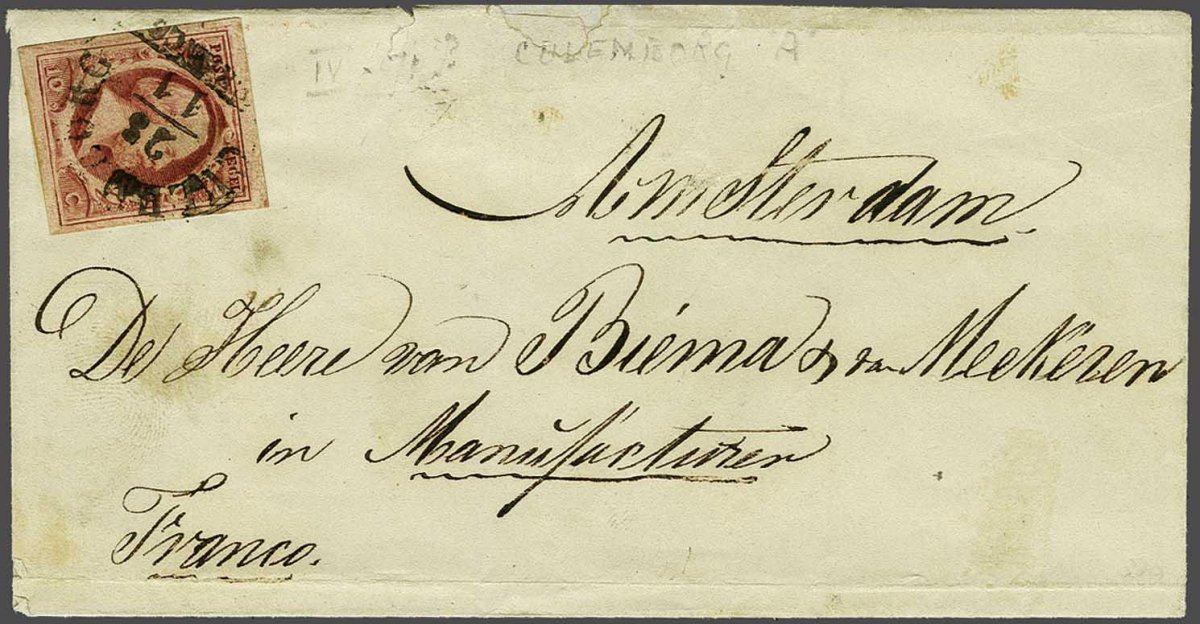 CULEMBORG "A"
POST
10 C
ZEGEL
28
11
Amsterdam.
De Heere van Biema & van Meekeren
in Manufacturen
Franco.